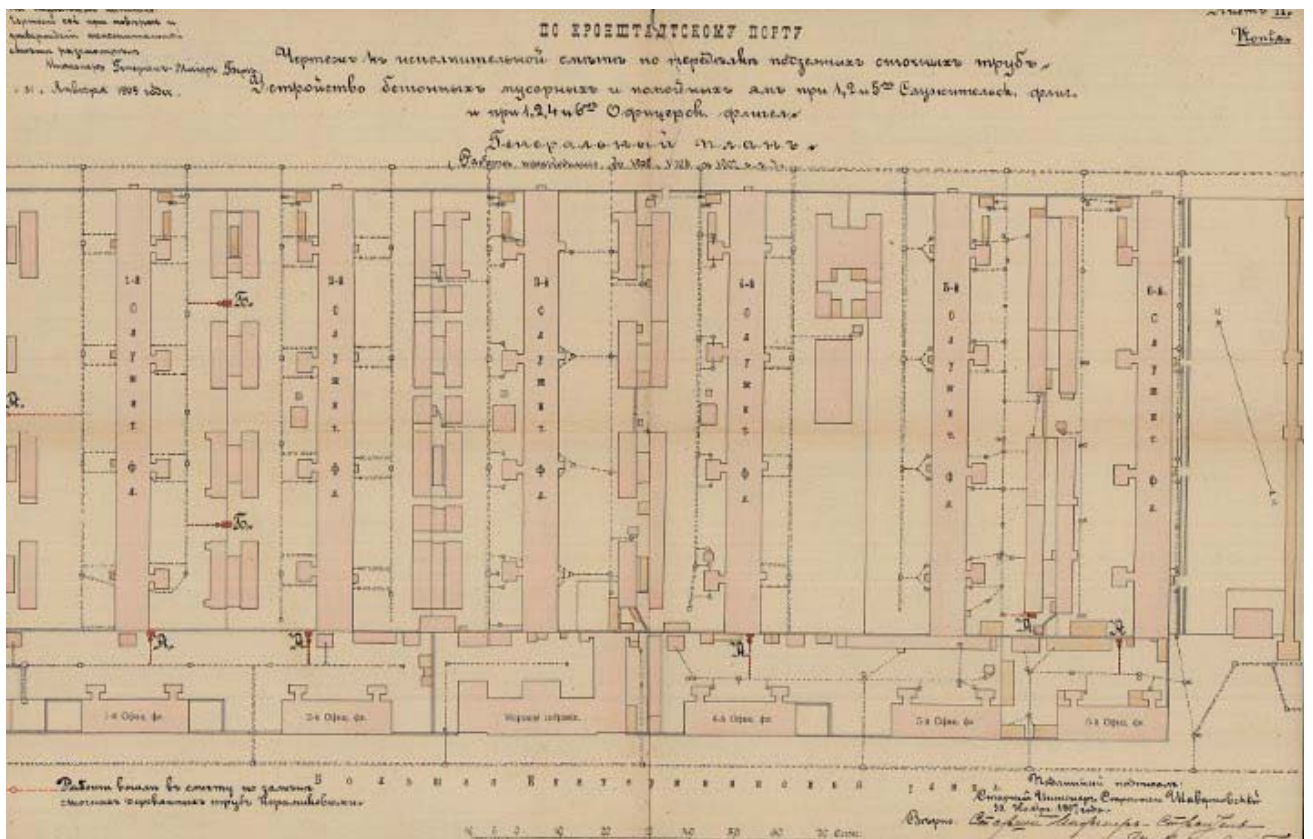 Чертежъ сей при повѣркѣ и
Инженеръ Генералъ-Маіоръ
31. Января 1908 года.
Листъ II.
Копія.
ПО КРОНШТАДТСКОМУ ПОРТУ
Чертежъ къ исполнительной смѣтѣ по передѣлкѣ подземныхъ сточныхъ трубъ.
Устройство бетонныхъ мусорныхъ и помойныхъ ямъ при 1, 2 и 5мъ Служительск. флиг.
и при 1, 2, 4 и 6мъ Офицерск. флигел.
Генеральный планъ.
1-й Служит. фл.
2-й Служит. фл.
3-й Служит. фл.
4-й Служит. фл.
5-й Служит. фл.
6-й Служит. фл.
Б.
Б.
А.
А.
А.
А.
А.
А.
1-й Офиц. фл.
2-й Офиц. фл.
Морское собраніе.
4-й Офиц. фл.
5-й Офиц. фл.
6-й Офиц. фл.
Работы вошли въ смѣту по замѣнѣ
сточныхъ деревянныхъ трубъ керамиковыми.
Подлинный подписалъ:
Старшій Инженеръ Строитель
30 Ноября 1907 года.
Вѣрно: Старшій Инженеръ-Строитель
10 5 0 10 20 30 40 50 60 70 Саж.